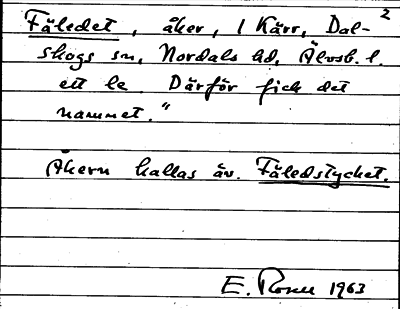 2
Fäledet, åker, 1 Kärr, Dal-
skogs sn, Nordals hd, Älvsb. l.
ett le Därför fick det
namnet."
Åkern kallas äv. Fäledstycket.
E. Rosell 1963